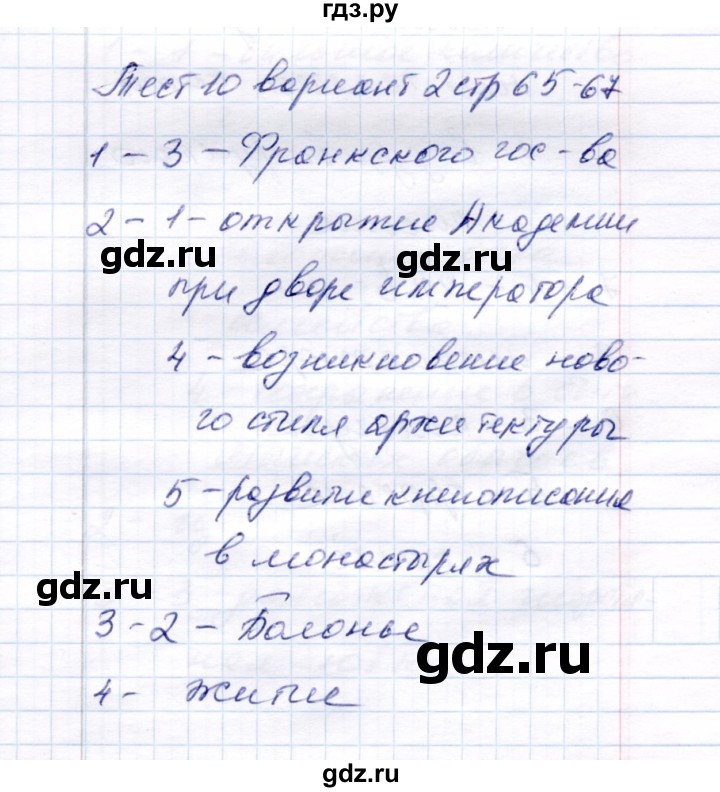 гдз.ру
Тест 10 вариант 2 стр 65-67
1 - 3 - Франкского гос-ва
2 - 1 - открытие Академии
gdz.ru
gdz.ru
при дворе императора
4 - возникновение ново-
го стиля архитектуры
5 - развитие книгописания
в монастырях
gdz.ru
3 - 2 - Болонье
gdz.ru
4 - житие
gdz.ru